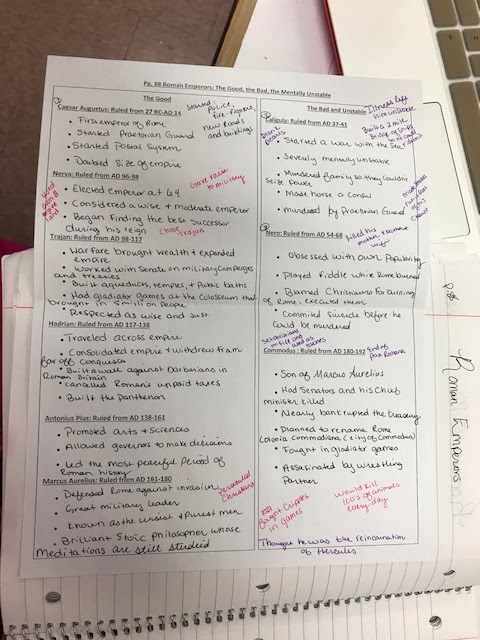 Pg. 88 Roman Emperors: The Good, the Bad, the Mentally Unstable
The Good
Caesar Augustus: Ruled from 27 BC-AD 14
Started police,
fire fighters,
new roads
and buildings
• First emperor of Rome
• Started Praetorian Guard
• Started Postal System
• Doubled Size of empire
Nerva: Ruled from AD 96-98
Gave raise
to military
• Elected emperor at 64
• Considered a wise + moderate emperor
• Began finding the best successor
during his reign
chose Trajan
Trajan: Ruled from AD 98-117
• Warfare brought wealth + expanded
empire
• Worked with Senate on military campaigns
and treaties
• Built aqueducts, temples, + public baths
• Had gladiator games at the Colosseum that
brought in 5 million people
• Respected as wise and just
Hadrian: Ruled from AD 117-138
• Traveled across empire
• Consolidated empire + withdrew from
far off conquests
• Built a wall against barbarians in
Roman Britain
• Cancelled Roman's unpaid taxes
• Built the Pantheon
Antonius Pius: Ruled from AD 138-161
• Promoted arts + sciences
• Allowed governors to make decisions
• Led the most peaceful period of
Roman history
Marcus Aurelius: Ruled from AD 161-180
persecuted
Christians
• Defended Rome against invasion
• Great military leader
• Known as the wisest + purest men
• Brilliant Stoic philosopher whose
Meditations are still studied
The Bad and Unstable
Illness left
him unstable
Caligula: Ruled from AD 37-41
Built a 2 mile
bridge of ships
Drank
pearls
• Started a war with the Sea
• Severely mentally unstable
• Murdered family so they couldn't
seize power
• Made horse a consul
• Murdered by Praetorian Guard
Nero: Ruled from AD 54-68
Killed his
mother +
wife
• Obsessed with own Popularity
• Played Fiddle while Rome burned
• Blamed Christians for burning
of Rome, executed them
• Commited Suicide before he
could be murdered
Set christians
on fire and used as
torches
Commodus: Ruled from AD 180-192
End of
Pax Romana
• Son of Marcus Aurelius
• Had Senators and his Chief
minister killed
• Nearly bankrupted the treasury
• Planned to rename Rome
Colonia Commodiana (city of Commodus)
• Fought in gladiator games
• Assasinated by wrestling
Partner
Fought Cripples
in games
would kill
100's of animals
every day
Thought he was the reincarnation
of Hercules
Roman Emperors